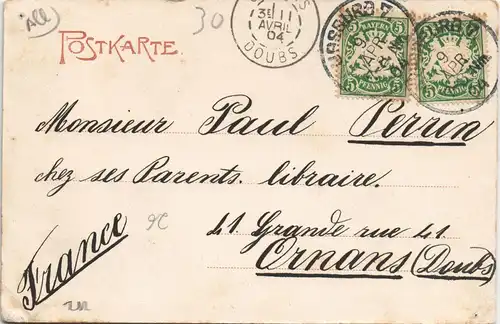 All
30
POSTKARTE
11
AVRIL
04
DOUBS
BAYERN
5 5
PFENNIG
9
APR
5 5
PFENNIG
9
APR
Monsieur Paul Perrin
chez ses Parents. libraire.
41 Grande rue 41
Ornans (Doubs)
France